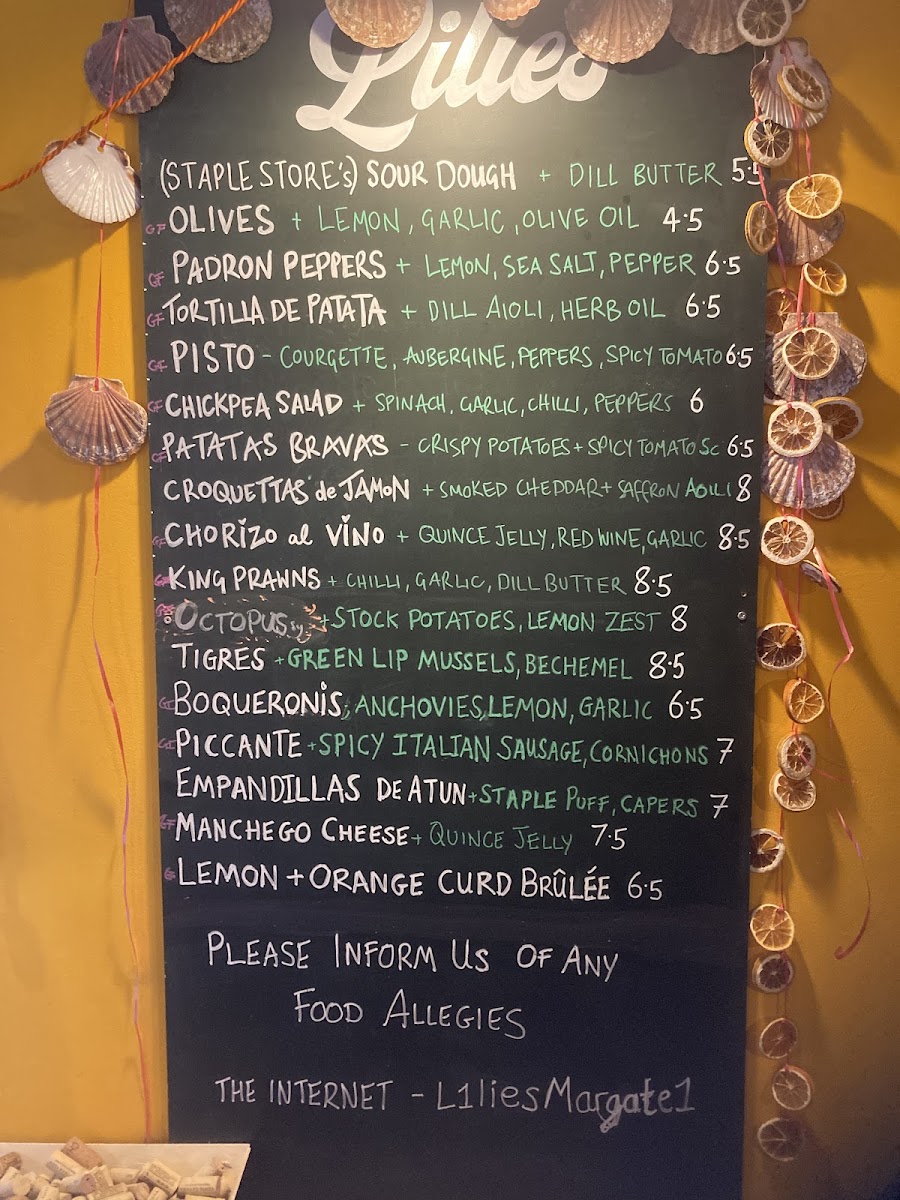 Lilies
(STAPLE STORE'S) SOUR DOUGH + DILL BUTTER 5.5
GF OLIVES + LEMON, GARLIC, OLIVE OIL 4.5
GF PADRON PEPPERS + LEMON, SEA SALT, PEPPER 6.5
GF TORTILLA DE PATATA + DILL AIOLI, HERB OIL 6.5
GF PISTO - COURGETTE, AUBERGINE, PEPPERS, SPICY TOMATO 6.5
GF CHICKPEA SALAD + SPINACH, GARLIC, CHILLI, PEPPERS 6
GF PATATAS BRAVAS - CRISPY POTATOES + SPICY TOMATO SC 6.5
CROQUETTAS de JAMON + SMOKED CHEDDAR + SAFFRON AOILI 8
GF CHORIZO al VINO + QUINCE JELLY, RED WINE, GARLIC 8.5
GF KING PRAWNS + CHILLI, GARLIC, DILL BUTTER 8.5
GF OCTOPUS + STOCK POTATOES, LEMON ZEST 8
TIGRES + GREEN LIP MUSSELS, BECHEMEL 8.5
GF BOQUERONIS; ANCHOVIES, LEMON, GARLIC 6.5
GF PICCANTE + SPICY ITALIAN SAUSAGE, CORNICHONS 7
EMPANDILLAS DE ATUN + STAPLE PUFF, CAPERS 7
GF MANCHEGO CHEESE + QUINCE JELLY 7.5
GF LEMON + ORANGE CURD BRÛLÉE 6.5
PLEASE INFORM US OF ANY
FOOD ALLEGIES
THE INTERNET - L1liesMargate1